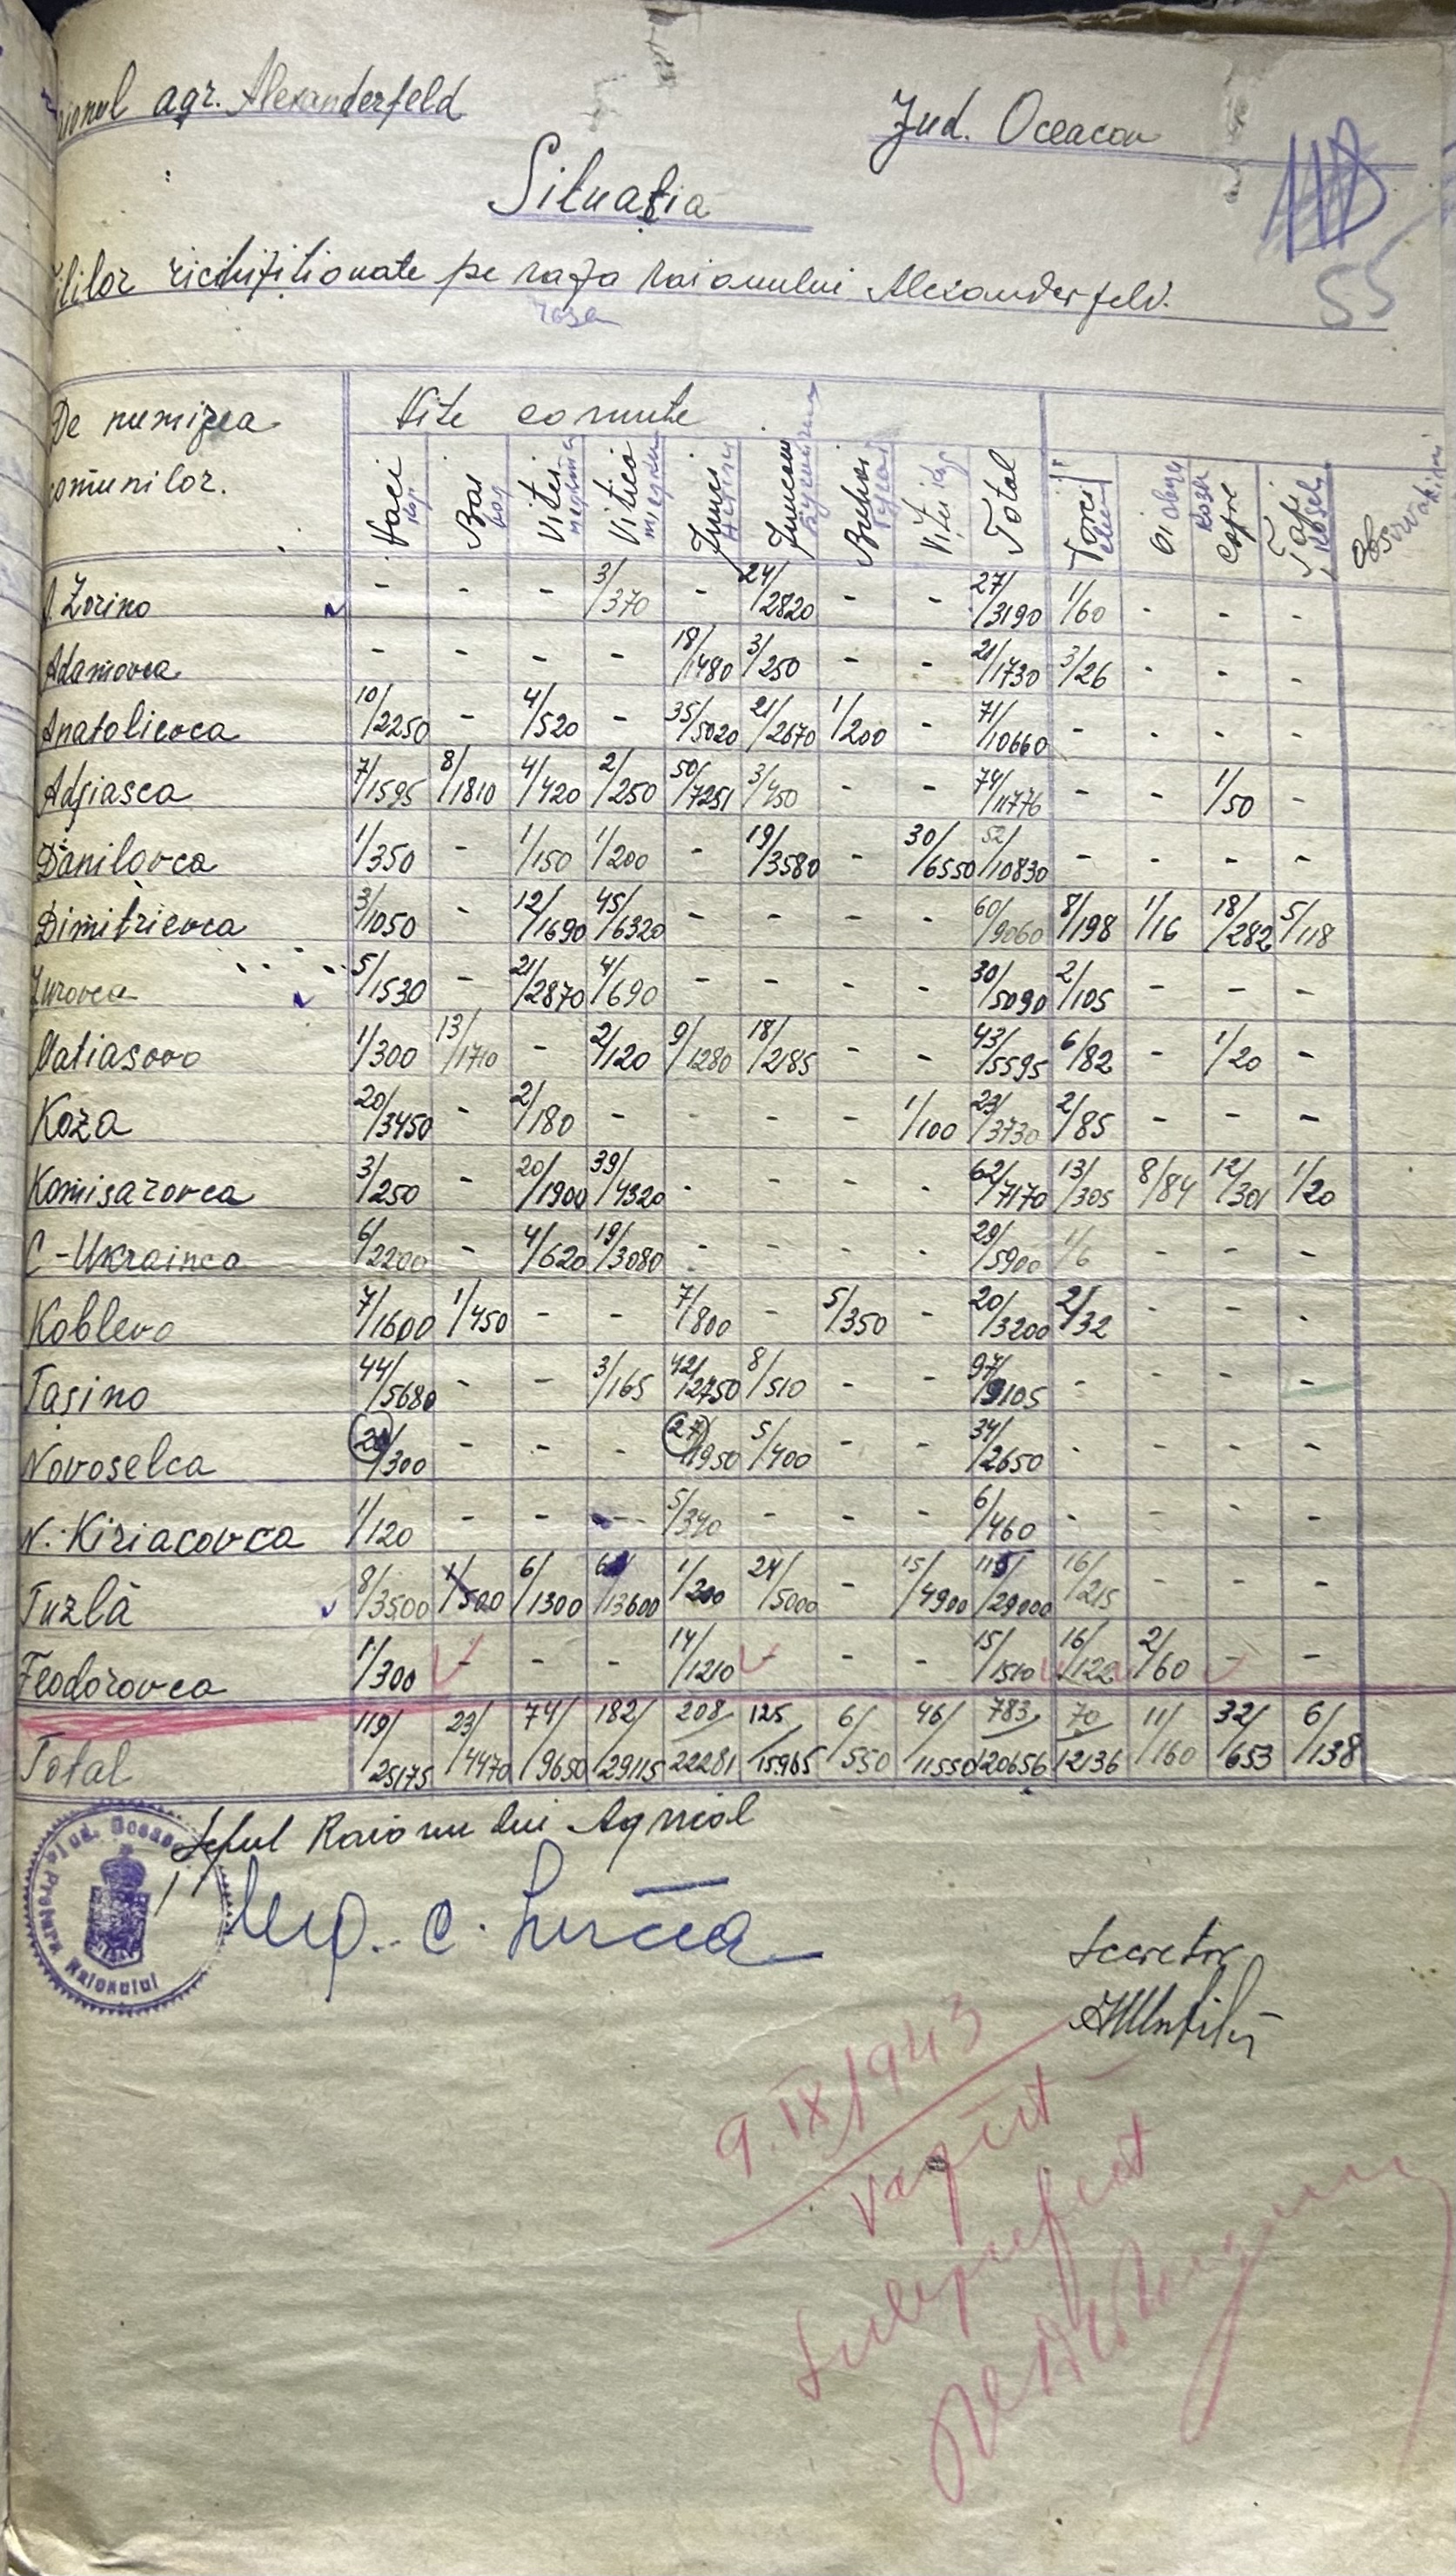 ionul agr. Alexanderfeld
Jud. Oceacov
Situația
55
ilor richiziționate pe raza raionului Alexanderfeld.
De numirea comunilor.
Vite cornute
Vaci Boi Vitei Vitica Junci Juncani Buhai Vitei Total Porci Oi Capre Țapi Observatiuni
Zorino - - - 3/370 - 24/2820 - - 27/3190 1/60 - - -
Adamovca - - - - 18/1480 3/250 - - 21/1730 3/26 - - -
Anatolievca 10/2250 - 4/520 - 35/5020 21/2670 1/200 - 71/10660 - - - -
Adjiasca 7/1595 8/1810 4/420 2/250 50/7251 3/450 - - 74/11776 - - 1/50 -
Danilovca 1/350 - 1/150 1/200 - 19/3580 - 30/6550 52/10830 - - - -
Dimitrievca 3/1050 - 12/1690 45/6320 - - - - 60/9060 8/198 1/16 18/282 5/118
Jurovca 5/1530 - 21/2870 4/690 - - - - 30/5090 2/105 - - -
Matiasovo 1/300 13/1710 - 2/120 9/1280 18/2185 - - 43/5595 6/82 - 1/20 -
Koza 20/3450 - 2/180 - - - - 1/100 23/3730 2/85 - - -
Komisarovca 3/250 - 20/1900 39/4320 - - - - 62/7170 13/305 8/84 12/301 1/20
C-Ukrainca 6/2200 - 4/620 19/3080 - - - - 29/5900 1/6 - - -
Koblevo 7/1600 1/450 - - 7/800 - 5/350 - 20/3200 2/32 - - -
Tasino 44/5680 - - 3/165 42/2750 8/510 - - 97/9105 - - - -
Novoselca /300 - - - 27/1950 5/400 - - 34/2650 - - - -
N. Kiriacovca 1/120 - - - 5/340 - - - 6/460 - - - -
Tuzlă 8/3500 1/500 6/1300 /13600 1/200 24/5000 - 15/4900 /29000 16/215 - - -
Feodorovca 1/300 - - - 14/1210 - - - 15/1510 16/122 2/60 - -
Total 119/25175 23/4470 74/9650 182/29115 208/22281 125/15965 6/550 46/11550 783/120656 70/12136 11/160 32/653 6/138
Șeful Raionului Agricol
Pretura Raionului
Secretar
9.IX/1943
Subprefect